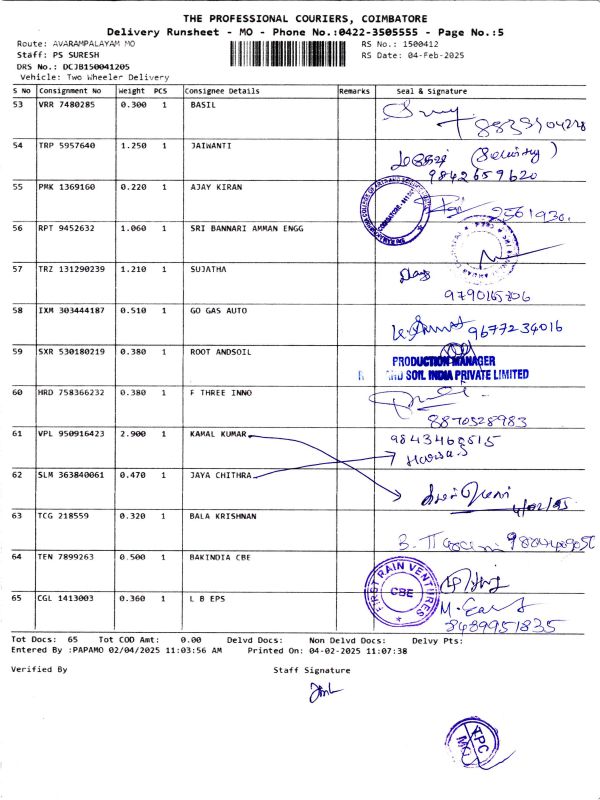 THE PROFESSIONAL COURIERS, COIMBATORE
Delivery Runsheet - MO - Phone No.:0422-3505555 - Page No.:5
Route: AVARAMPALAYAM MO RS No.: 1500412
Staff: PS SURESH RS Date: 04-Feb-2025
DRS No.: DCJB150041205
Vehicle: Two Wheeler Delivery
S No Consignment No Weight PCS Consignee Details Remarks Seal & Signature
53 VRR 7480285 0.300 1 BASIL
54 TRP 5957640 1.250 1 JAIWANTI
(Security)
9842659620
55 PMK 1369160 0.220 1 AJAY KIRAN
2561930.
56 RPT 9452632 1.060 1 SRI BANNARI AMMAN ENGG
57 TRZ 131290239 1.210 1 SUJATHA
9790165806
58 IXM 303444187 0.510 1 GO GAS AUTO
9677234016
59 SXR 530180219 0.380 1 ROOT ANDSOIL
PRODUCTION MANAGER
AND SOIL INDIA PRIVATE LIMITED
60 HRD 758366232 0.380 1 F THREE INNO
8870528983
61 VPL 950916423 2.900 1 KAMAL KUMAR
62 SLM 363840061 0.470 1 JAYA CHITHRA
63 TCG 218559 0.320 1 BALA KRISHNAN
64 TEN 7899263 0.500 1 BAKINDIA CBE
FIRST RAIN VENTURES
CBE
65 CGL 1413003 0.360 1 L B EPS
8489951835
Tot Docs: 65 Tot COD Amt: 0.00 Delvd Docs: Non Delvd Docs: Delvy Pts:
Entered By :PAPAMO 02/04/2025 11:03:56 AM Printed On: 04-02-2025 11:07:38
Verified By Staff Signature
TPC